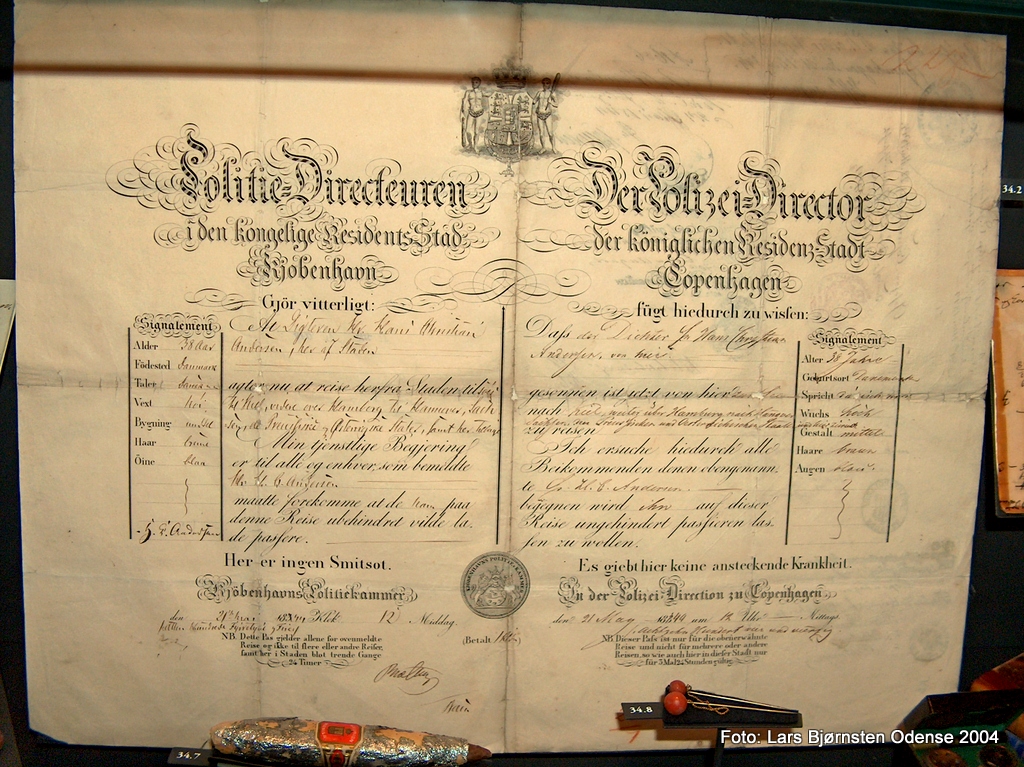 Politie-Directeuren
i den kongelige Residents-Stad
Kjöbenhavn
Gjör vitterligt:
Signalement
Alder 38 Aar
Födested Danmark
Taler Dansk
Vext höi
Bygning middel
Haar brune
Öine blaa
H. C. Andersen
At Digteren Hr. Hans Christian
Andersen, her af Staden
agter nu at reise herfra Staden til
Kiel, videre over Hamborg til Hannover, Sach
sen, de Preussiske og Østerrigske Stater, samt
Min tjenstlige Begjering
er til alle og enhver, som bemeldte
Hr. H. C. Andersen
maatte forekomme at de ham paa
denne Reise ubehindret vilde la-
de passere.
Her er ingen Smitsot.
Kjöbenhavns Politiekammer
den 21 Mai 1844 Klok. 12 Middag.
Atten Hundrede Fyrretyve og Fire
NB. Dette Pas gjelder allene for ovenmeldte
Reise og ikke til flere eller andre Reiser,
samt her i Staden blot trende Gange
24 Timer
(Betalt
KJØBENHAVNS POLITIEKAMMER
Der Polizei-Director
der königlichen Residenz-Stadt
Copenhagen
fügt hiedurch zu wissen:
Dass der Dichter Hr. Hans Christian
Andersen, von hier
gesonnen ist jetzt von hier
nach Kiel, weiter über Hamburg nach Hannover
Sachsen, den Preussischen und Oesterreichischen Staaten
zu reisen
Ich ersuche hiedurch alle
Beikommenden denen obengenann-
te Hr. H. C. Andersen
begegnen wird ihn auf dieser
Reise ungehindert passieren las-
sen zu wollen.
Signalement
Alter 38 Jahre
Geburtsort Danemark
Spricht
Wuchs hoch
Gestalt mittel
Haare braun
Augen blau
Es giebt hier keine ansteckende Krankheit.
In der Polizei-Direction zu Copenhagen
den 21 May 1844 um 12 Uhr Mittags
Achtzehn Hundert vier und vierzig
NB. Dieser Pass ist nur für die obenerwähnte
Reise und nicht für mehrere oder andere
Reisen, so wie auch hier in dieser Stadt nur
für 3 Mal 24 Stunden gültig.
34.2
34.7
34.8
Foto: Lars Bjørnsten Odense 2004